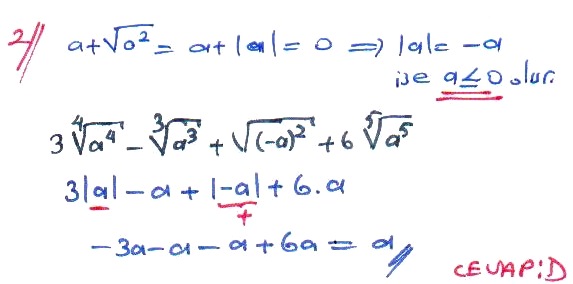 2// a+√a² = a+|a| = 0 ⟹ |a| = -a
ise a≤0 olur.
3⁴√a⁴ - ³√a³ + √(-a)² + 6 ⁵√a⁵
3|a| - a + |-a| + 6.a
+
-3a-a-a+6a = a//
CEVAP:D